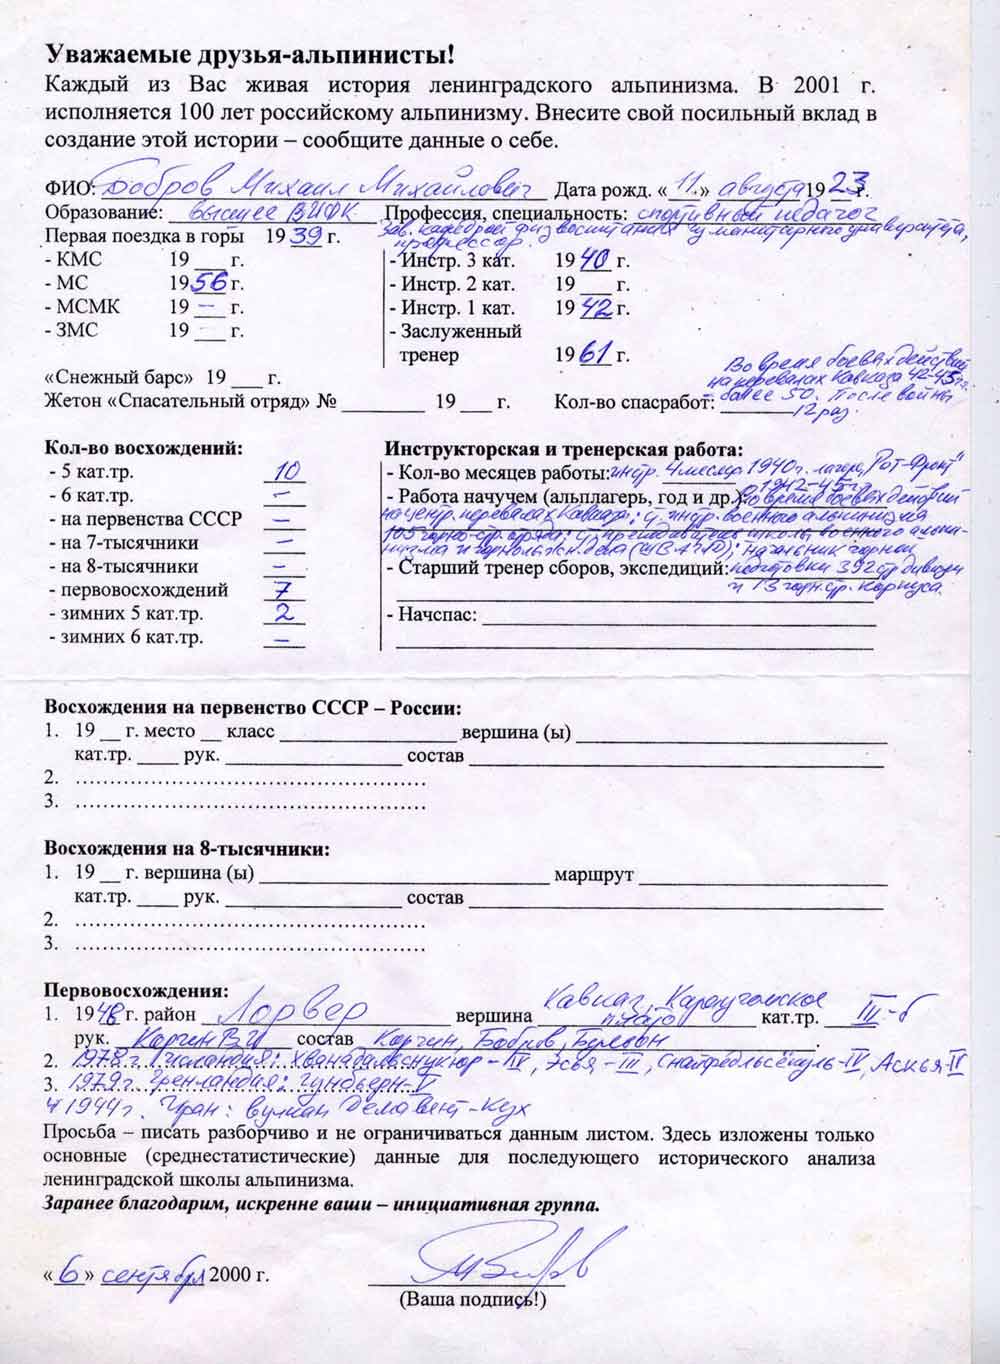 Уважаемые друзья-альпинисты!
Каждый из Вас живая история ленинградского альпинизма. В 2001 г.
исполняется 100 лет российскому альпинизму. Внесите свой посильный вклад в
создание этой истории – сообщите данные о себе.
ФИО: Бобров Михаил Михайлович Дата рожд. «11» августа 1923 г.
Образование: высшее ВИФК Профессия, специальность: спортивный педагог
зав. кафедрой физ воспитания гуманитарного университета,
профессор.
Первая поездка в горы 1939 г.
- КМС 19 ___ г. - Инстр. 3 кат. 1940 г.
- МС 1956 г. - Инстр. 2 кат. 19 ___ г.
- МСМК 19 – г. - Инстр. 1 кат. 1942 г.
- ЗМС 19 ___ г. - Заслуженный
тренер 1961 г.
Во время боевых действий
на перевалах Кавказа 42-43 гг.
- более 50. После войны
12 раз.
«Снежный барс» 19 ___ г.
Жетон «Спасательный отряд» № ________ 19 ___ г. Кол-во спасработ: ________
Кол-во восхождений: Инструкторская и тренерская работа:
- 5 кат.тр. 10 - Кол-во месяцев работы: инстр. 4 месяца 1940г. лагерь "Рот-Фронт"
1942-45 г.
- 6 кат.тр. – - Работа начучем (альплагерь, год и др.): Во время боевых действий
- на первенства СССР – на центр. перевалах Кавказа; инстр. военного альпинизма
- на 7-тысячники – школы военного альпи-
низма и горнолыжн. дела (ШВАГЛД); начальник горной
- на 8-тысячники – - Старший тренер сборов, экспедиций: подготовки 392 стр дивизии
- первовосхождений 7 и 13 горн. стр. корпуса.
- зимних 5 кат.тр. 2 - Начспас: ________
- зимних 6 кат.тр. –
Восхождения на первенство СССР – России:
1. 19 __ г. место __ класс ________ вершина (ы) ________
кат.тр. ____ рук. ________ состав ________
2. ........................................
3. ........................................
Восхождения на 8-тысячники:
1. 19 __ г. вершина (ы) ________ маршрут ________
кат.тр. ____ рук. ________ состав ________
2. ........................................
3. ........................................
Первовосхождения:
1. 1948 г. район Лорвер вершина Кавказ, Караугомское плато кат.тр. III-б
рук. Каргин В И состав Каргин, Бобров,
2. 1978 г. Исландия: Хванадальснукюр - IV, Эсья - III, IV, Аскья - IV
3. 1979 г. Гренландия: Гунбьерн - V
4 1944 г. Иран: вулкан Демавент-Кух
Просьба – писать разборчиво и не ограничиваться данным листом. Здесь изложены только
основные (среднестатистические) данные для последующего исторического анализа
ленинградской школы альпинизма.
Заранее благодарим, искренне ваши – инициативная группа.
«6» сентября 2000 г.
(Ваша подпись!)